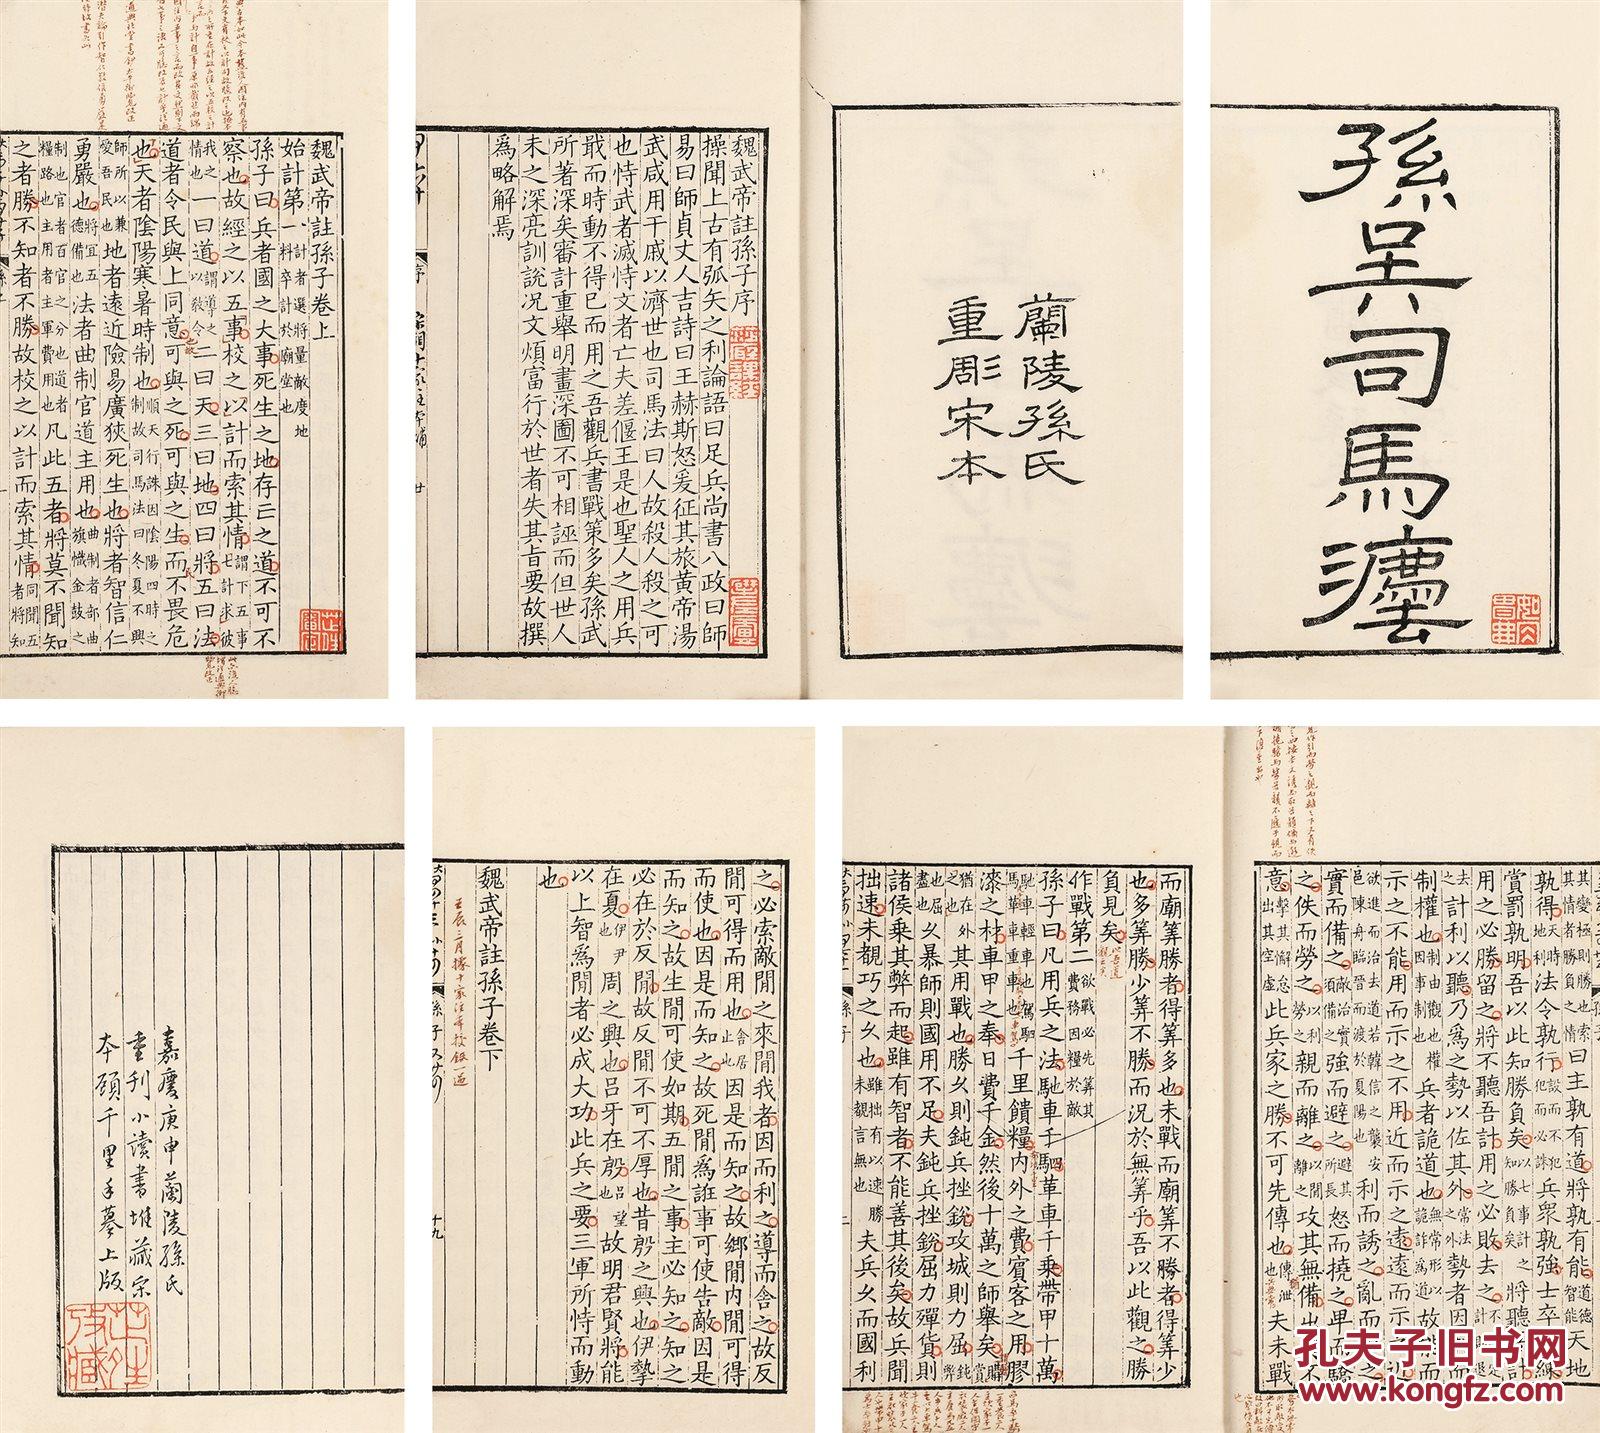 孫吳司馬灋
蘭陵孫氏
重彫宋本
魏武帝註孫子序
操聞上古有弧矢之利論語曰足兵尚書八政曰師
易曰師貞丈人吉詩曰王赫斯怒爰征其旅黃帝湯
武咸用干戚以濟世也司馬法曰人故殺人殺之可
也恃武者滅恃文者亡夫差偃王是也聖人之用兵
戢而時動不得已而用之吾觀兵書戰策多矣孫武
所著深矣審計重舉明畫深圖不可相誣而但世人
未之深亮訓說况文煩富行於世者失其旨要故撰
爲略解焉
魏武帝註孫子卷上
始計第一計者選將量敵度地料卒計於廟堂也
孫子曰兵者國之大事死生之地存亡之道不可不
察也故經之以五事校之以計而索其情謂下五事七計求彼
我之情也一曰道謂導之以敎令二曰天三曰地四曰將五曰法
道者令民與上同意可與之死可與之生而不畏危
也天者陰陽寒暑時制也順天行誅因陰陽四時之制故司馬法曰冬夏不興
師所以兼愛吾民也地者遠近險易廣狹死生也將者智信仁
勇嚴也將宜五德備也法者曲制官道主用也曲制者部曲旛幟金鼓之
制也官者百官之分也道者糧路也主用者主軍費用也凡此五者將莫不聞知
之者勝不知者不勝故校之以計而索其情同聞五者將知
其變極則勝也索其情者勝負之情曰主孰有道將孰有能道德智能天地
孰得天時地利法令孰行設而不犯犯而必誅兵衆孰強士卒孰練
賞罰孰明吾以此知勝負矣以七事計之知勝負矣將聽吾計
用之必勝留之將不聽吾計用之必敗去之
去之計利以聽乃爲之勢以佐其外常法之外勢者因利而
制權也制由權也權因事制也兵者詭道也兵無常形以詭詐爲道故能而
示之不能用而示之不用近而示之遠遠而示之近
欲進而治去道若韓信之襲安邑陳舟臨晉而渡於夏陽也利而誘之亂而取之
實而備之敵治實須備之強而避之避其所長怒而撓之卑而驕
之佚而勞之以利勞之親而離之以間離之攻其無備出其不
意擊其懈怠出其空虛此兵家之勝不可先傳也傳洩也夫未戰
而廟筭勝者得筭多也未戰而廟筭不勝者得筭少
也多筭勝少筭不勝而況於無筭乎吾以此觀之勝
負見矣
作戰第二欲戰必先筭其費務因糧於敵
孫子曰凡用兵之法馳車千駟革車千乘帶甲十萬
馳車輕車也駕駟馬革車重車也千里饋糧內外之費賓客之用膠
漆之材車甲之奉日費千金然後十萬之師舉矣購賞
猶在外其用戰也勝久則鈍兵挫銳攻城則力屈鈍弊
也屈盡也久暴師則國用不足夫鈍兵挫銳屈力殫貨則
諸侯乘其弊而起雖有智者不能善其後矣故兵聞
拙速未覩巧之久也雖拙有以速勝未覩言無也夫兵久而國利
之必索敵間之來間我者因而利之導而舍之故反
間可得而用也舍居止也因是而知之故鄉間內間可得
而使也因是而知之故死間爲誑事可使告敵因是
而知之故生間可使如期五間之事主必知之知之
必在於反間故反間不可不厚也昔殷之興也伊摯
在夏伊尹也周之興也呂牙在殷呂望也故明君賢將能
以上智爲間者必成大功此兵之要三軍所恃而動
也
魏武帝註孫子卷下
嘉慶庚申蘭陵孫氏
重刊小讀書堆藏宋
本顧千里手摹上版
孔夫子旧书网
www.kongfz.com